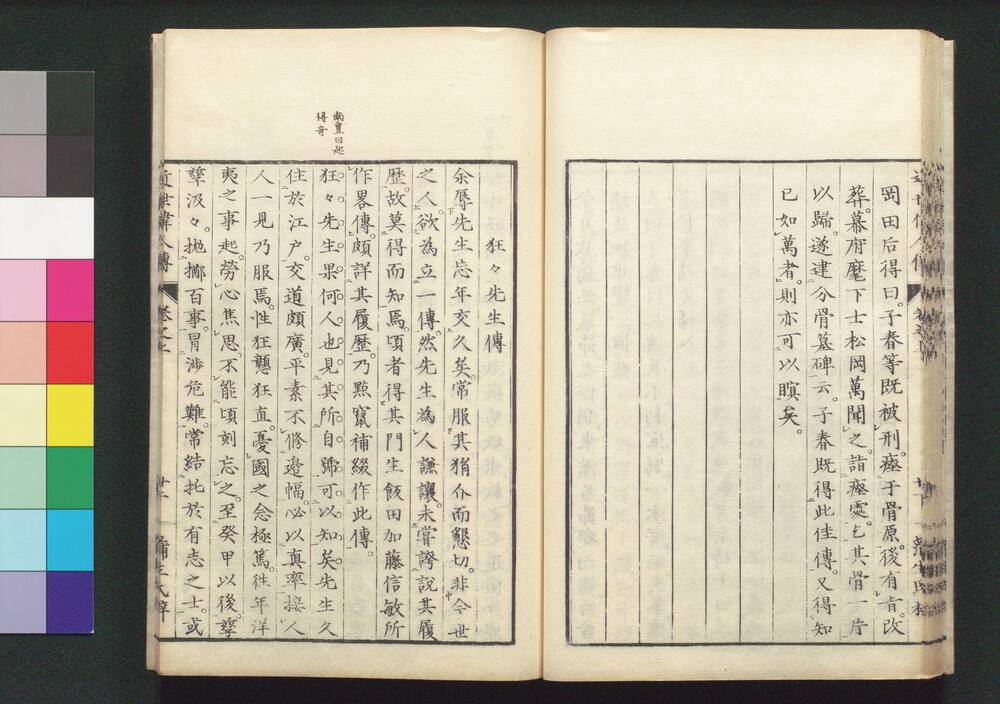 岡田后得曰。子春等既被刑。瘞于骨原。後有旨。改
葬。幕府麾下士松岡萬聞之。詣瘞處。乞其骨一片
以歸。遂建分骨墓碑云。子春既得此佳傳。又得知
已如萬者。則亦可以瞑矣。
狂々先生傳
余辱先生忘年交久矣。常服其狷介而懇切。非今世
之人。欲為立一傳。然先生為人謙讓。未嘗誇説其履
歴。故莫得而知焉。頃者得其門生飯田加藤信敏所
作畧傳。頗詳其履歴。乃㸃竄補綴作此傳。
狂々先生。果何人也。見其所自號。可以知矣。先生久
住於江户。交道頗廣。平素不脩邊幅。必以真率接人
人一見乃服焉。性狂戇狂直。憂國之念極篤。徃年洋
夷之事起。勞心焦思。不能頃刻忘之。至癸甲以後。孳
孳汲々。抛擲百事。冒渉危難。常結托於有志之士。或
近世偉人傳
蒲生氏梓
南豊曰起
得奇